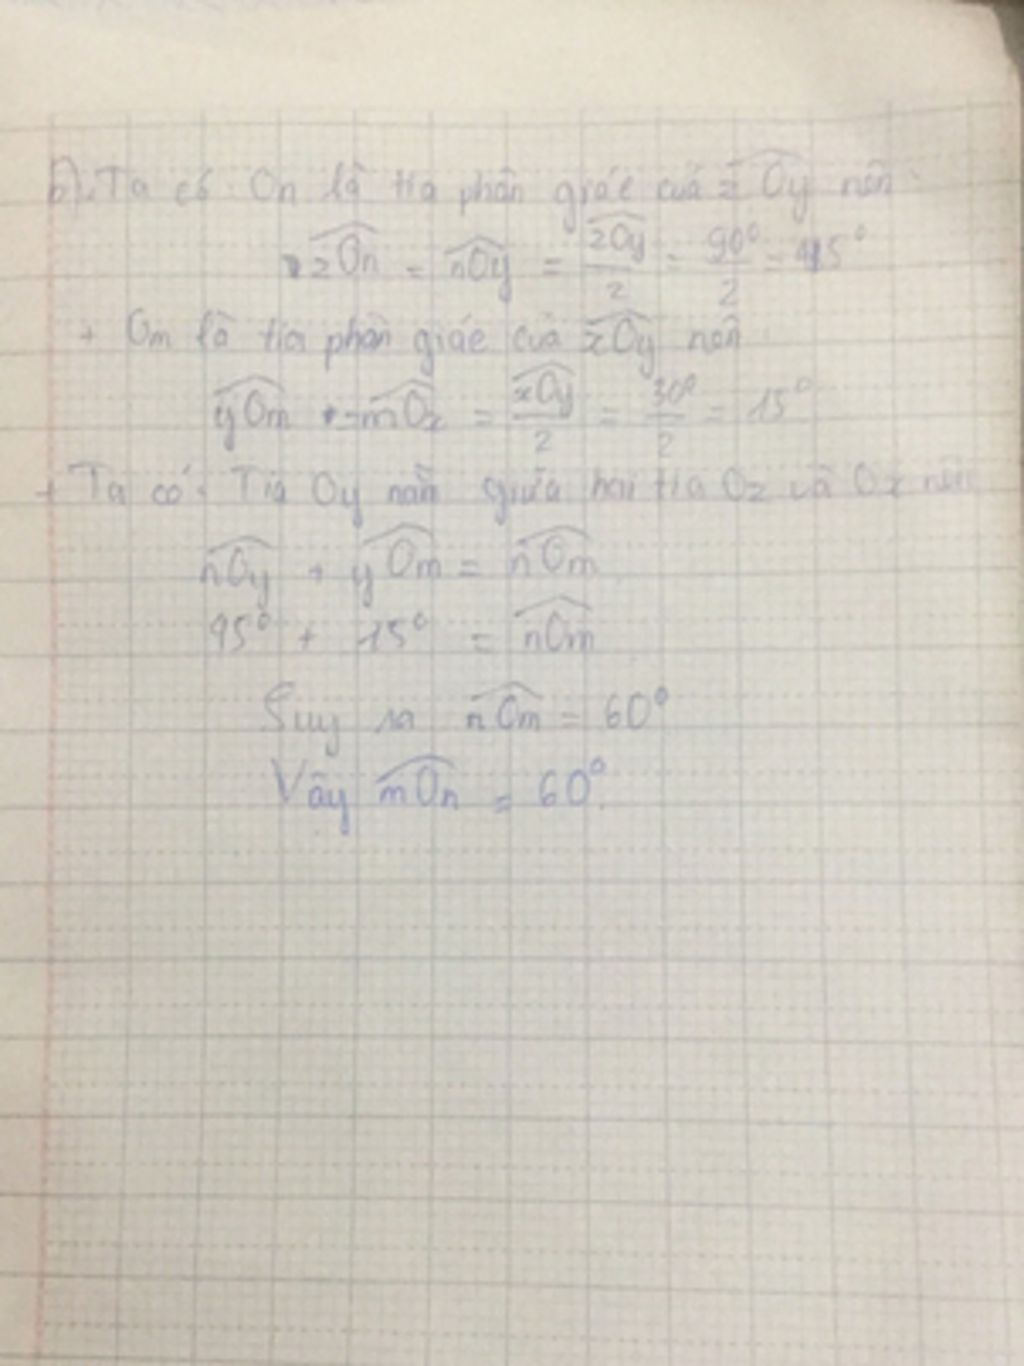 b) Ta có On là tia phân giác của zOy nên
zOn = nOy = zOy/2 = 90°/2 = 45°
+ Om là tia phân giác của xOy nên
yOm = mOx = xOy/2 = 30°/2 = 15°
+ Ta có: Tia Oy nằm giữa hai tia Oz và Ox nên
nOy + yOm = nOm
45° + 15° = nOm
Suy ra nOm = 60°
Vậy mOn = 60°.